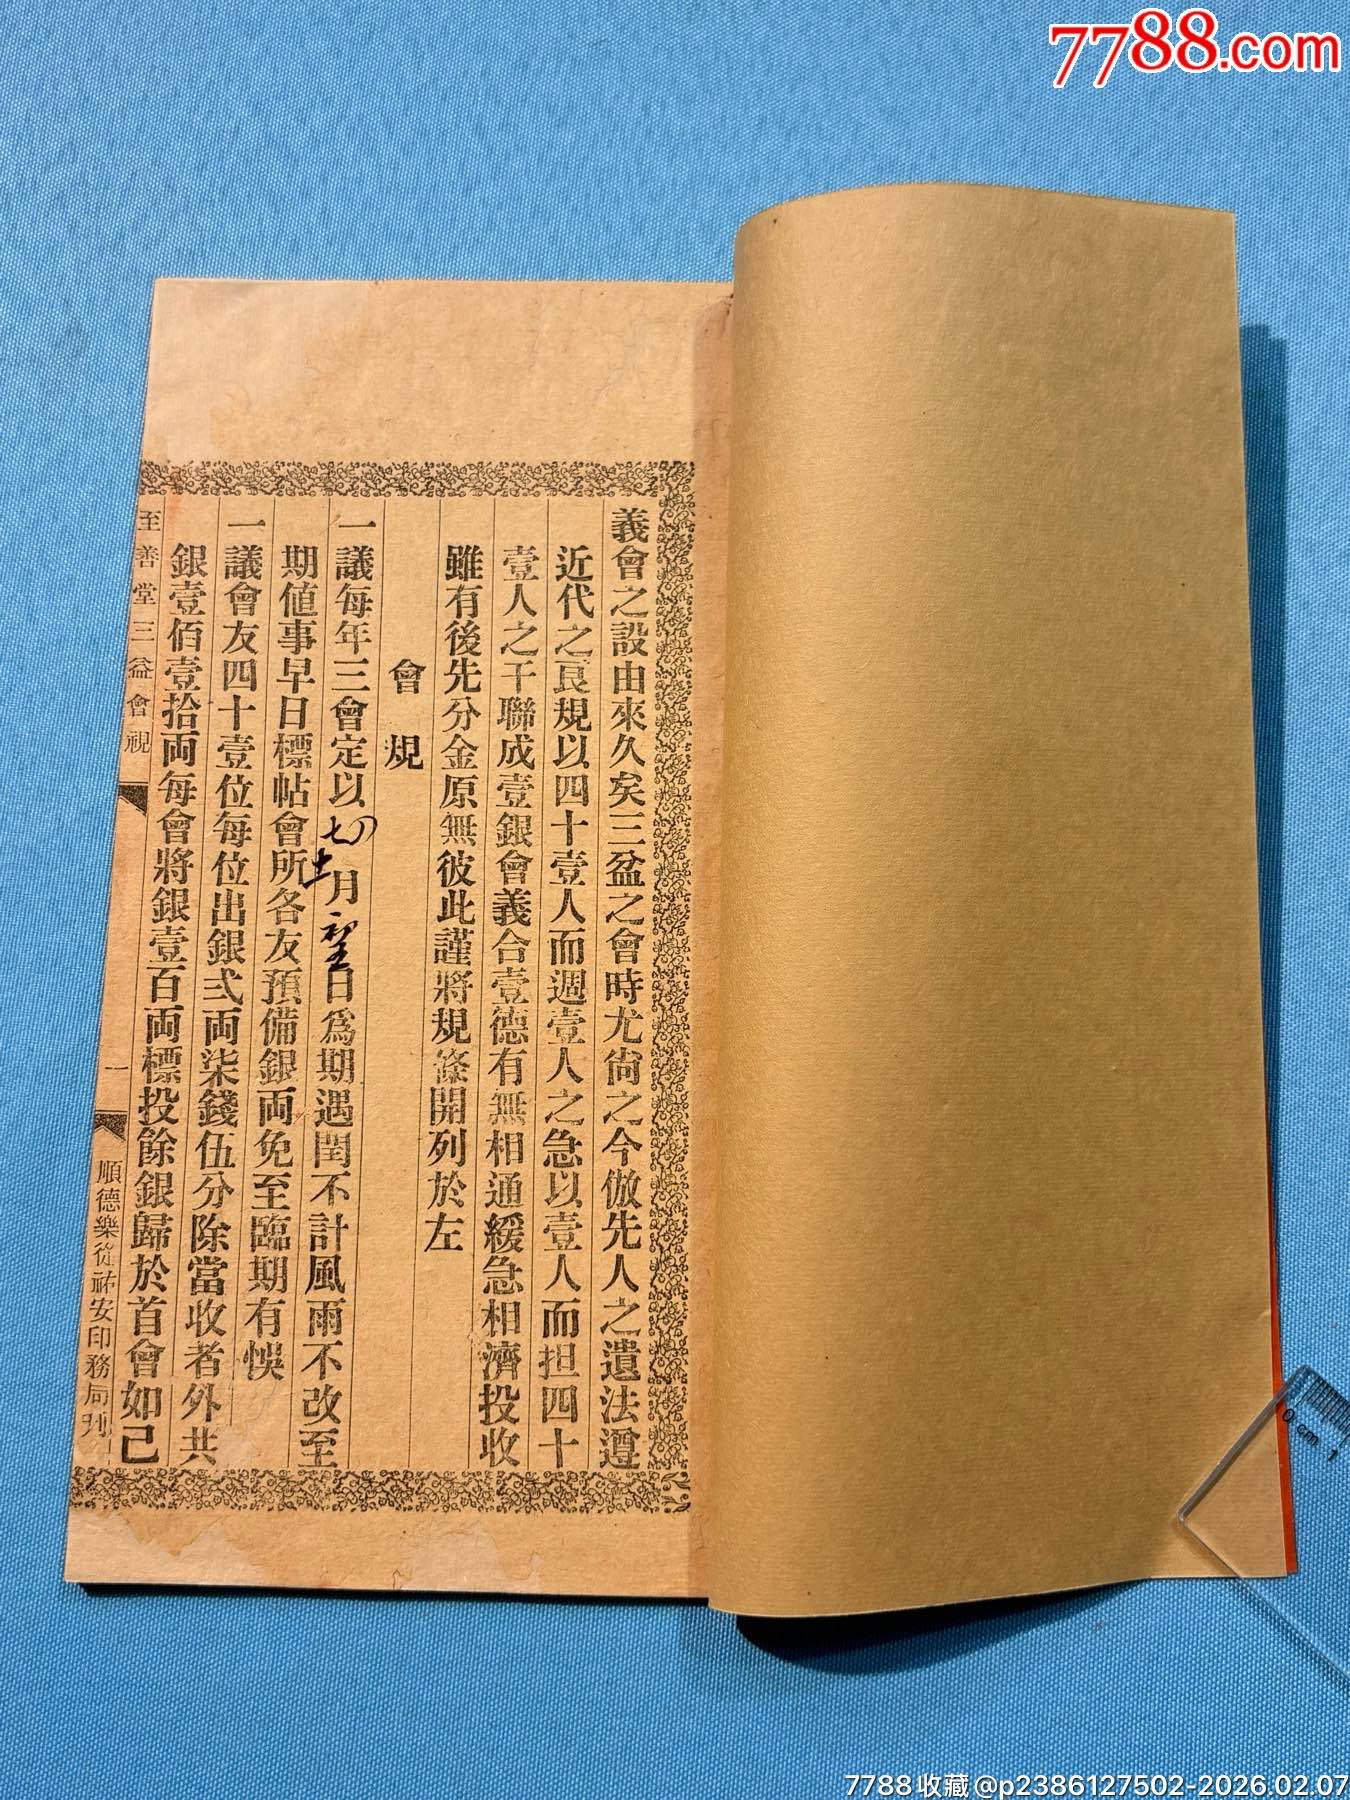 7788.com
義會之設由來久矣三盆之會時尤尙之今倣先人之遺法遵
近代之良規以四十壹人而週壹人之急以壹人而担四十
壹人之干聯成壹銀會義合壹德有無相通緩急相濟投收
雖有後先分金原無彼此謹將規條開列於左
會規
一議每年三會定以七十一月望日爲期遇閏不計風雨不改至
期値事早日標帖會所各友預備銀両免至臨期有悞
一議會友四十壹位每位出銀弍両柒錢伍分除當收者外共
銀壹佰壹拾両每會將銀壹百両標投餘銀歸於首會如己
至善堂三益會視
一
順德樂從祐安印務局刊
0 cm 1
7788收藏@p2386127502-2026.02.07